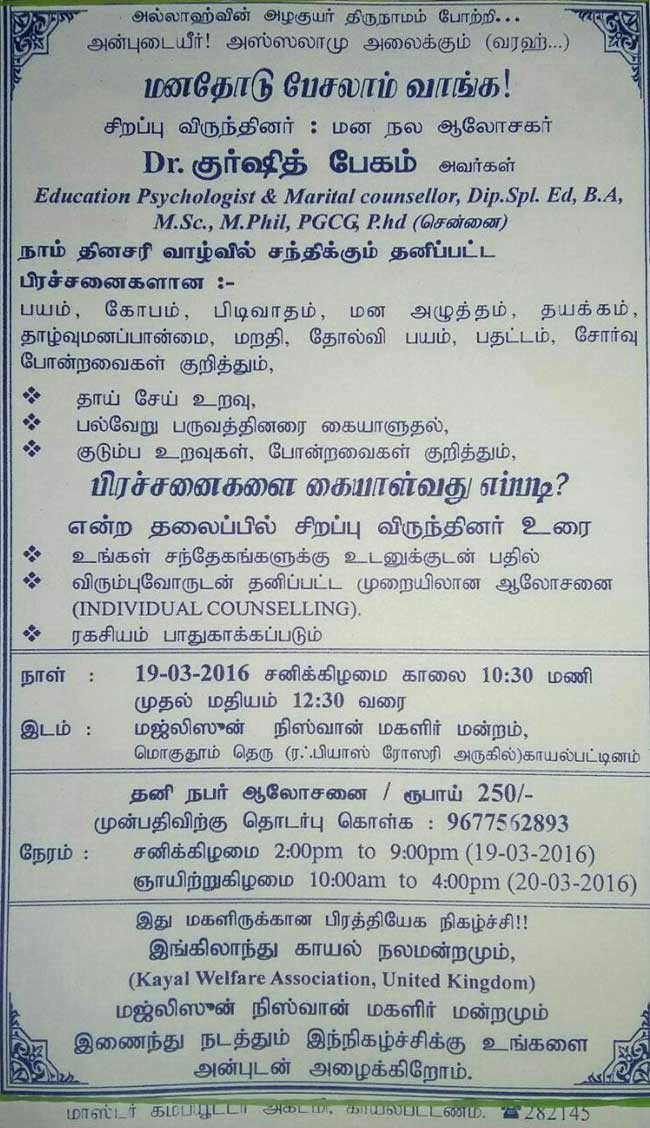 அல்லாஹ்வின் அழகுயர் திருநாமம் போற்றி...
அன்புடையீர்! அஸ்ஸலாமு அலைக்கும் (வரஹ்...)
மனதோடு பேசலாம் வாங்க!
சிறப்பு விருந்தினர் : மன நல ஆலோசகர்
Dr. குர்ஷித் பேகம் அவர்கள்
Education Psychologist & Marital counsellor, Dip.Spl. Ed, B.A,
M.Sc., M.Phil, PGCG, P.hd (சென்னை)
நாம் தினசரி வாழ்வில் சந்திக்கும் தனிப்பட்ட
பிரச்சனைகளான :-
பயம், கோபம், பிடிவாதம், மன அழுத்தம், தயக்கம்,
தாழ்வுமனப்பான்மை, மறதி, தோல்வி பயம், பதட்டம், சோர்வு
போன்றவைகள் குறித்தும்,
❖ தாய் சேய் உறவு,
❖ பல்வேறு பருவத்தினரை கையாளுதல்,
❖ குடும்ப உறவுகள், போன்றவைகள் குறித்தும்,
பிரச்சனைகளை கையாள்வது எப்படி?
என்ற தலைப்பில் சிறப்பு விருந்தினர் உரை
❖ உங்கள் சந்தேகங்களுக்கு உடனுக்குடன் பதில்
❖ விரும்புவோருடன் தனிப்பட்ட முறையிலான ஆலோசனை
(INDIVIDUAL COUNSELLING).
❖ ரகசியம் பாதுகாக்கப்படும்
நாள் : 19-03-2016 சனிக்கிழமை காலை 10:30 மணி
முதல் மதியம் 12:30 வரை
இடம் : மஜ்லிஸுன் நிஸ்வான் மகளிர் மன்றம்,
மொகுதூம் தெரு (ரஃபியாஸ் ரோஸரி அருகில்)காயல்பட்டினம்
தனி நபர் ஆலோசனை / ரூபாய் 250/-
முன்பதிவிற்கு தொடர்பு கொள்க : 9677562893
நேரம் : சனிக்கிழமை 2:00pm to 9:00pm (19-03-2016)
ஞாயிற்றுகிழமை 10:00am to 4:00pm (20-03-2016)
இது மகளிருக்கான பிரத்தியேக நிகழ்ச்சி!!
இங்கிலாந்து காயல் நலமன்றமும்,
(Kayal Welfare Association, United Kingdom)
மஜ்லிஸுன் நிஸ்வான் மகளிர் மன்றமும்
இணைந்து நடத்தும் இந்நிகழ்ச்சிக்கு உங்களை
அன்புடன் அழைக்கிறோம்.
மாஸ்டர் கம்பயூட்டர் அகடமி, காயல்பட்டணம். ☎282145